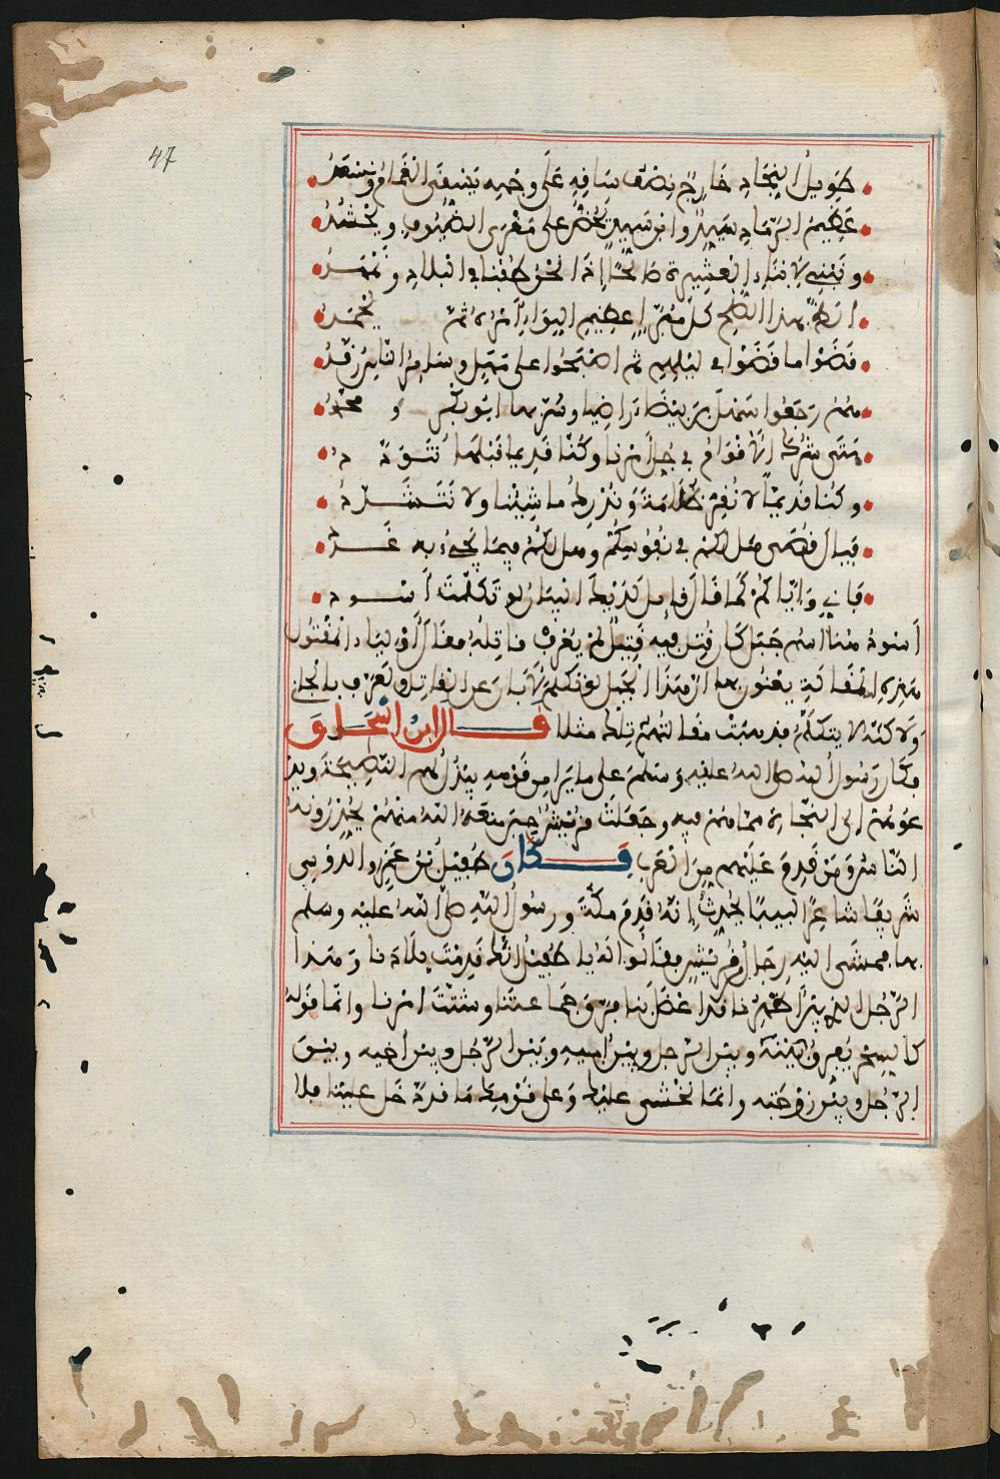 47
طويل النجاد خارج نصف ساقه على وجهه يسقى الغمام ويسعد
عظيم الرماد سيد وابن سيد يحض على مقرى الضيوف ويحشد
ويبني لابناء العشيرة صالحا اذا نحن طفنا في البلاد ويمهد
الظ بهذا الصلح كل مبرا عظيم اللواء امره ثم يحمد
قضوا ما قضوا في ليلهم ثم اصبحوا على مهل وسائر الناس رقد
هم رجعوا سهل بن بيضاء راضيا وسر بها ابو بكر و محمد
متى شرك الاقوام في جل امرنا وكنا قديما قبلها نتودد
وكنا قديما لا نقر ظلامة وندرك ما شينا ولا نتشدد
فيال قصي هل لكم في نفوسكم وهل لكم فيما يجيء به غد
فاني واياكم كما قال قايل لديك البيان لو تكلمت اسود
أسود هنا اسم جبل كان قتل فيه قتيل لم يعرف قاتله فقال أولياء المقتول
هذه المقالة يعنون بها ان هذا الجبل لو تكلم لأبان عن القاتل ولعرف بالجاني
ولاكنه لا يتكلم فذهبت مقالتهم تلك مثلا قال ابن اسحاق
فكان رسول الله صلى الله عليه وسلم على ما يرا من قومه يبذل لهم النصيحة ويد
عوهم الى النجاة مما هم فيه وجعلت قريش حين منعه الله منهم يحذرونه
الناس ومن قدم عليهم من العرب فكان طفيل بن عمرو الدوسي
شريفا شاعرا لبيبا يحدث انه قدم مكة ورسول الله صلى الله عليه وسلم
بها فمشى اليه رجال قريش فقالوا له يا طفيل انك قدمت بلادنا وهذا
الرجل الذي بين أظهرنا قد اعضل بنا فرق جماعتنا وشتت امرنا وانما قوله
كالسحر يفرق بينه وبين الرجل وبين ابيه وبين الرجل وبين أخيه وبين
الرجل وبين زوجته وانما نخشى عليك وعلى قومك ما قد دخل علينا فلا